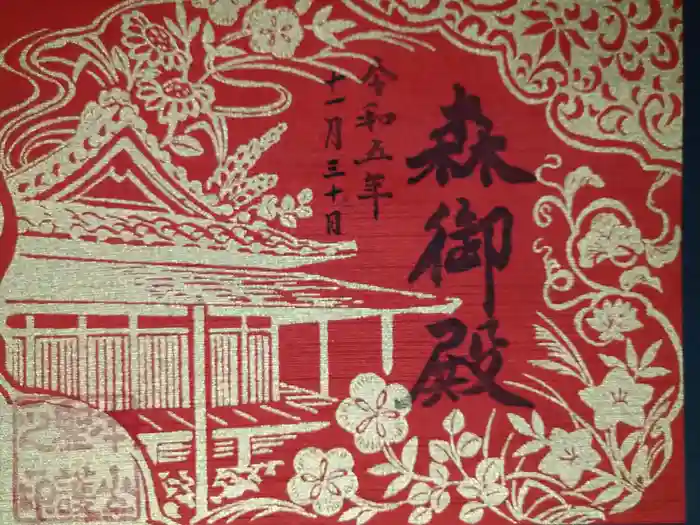 森御殿
令和五年
十一月三十日